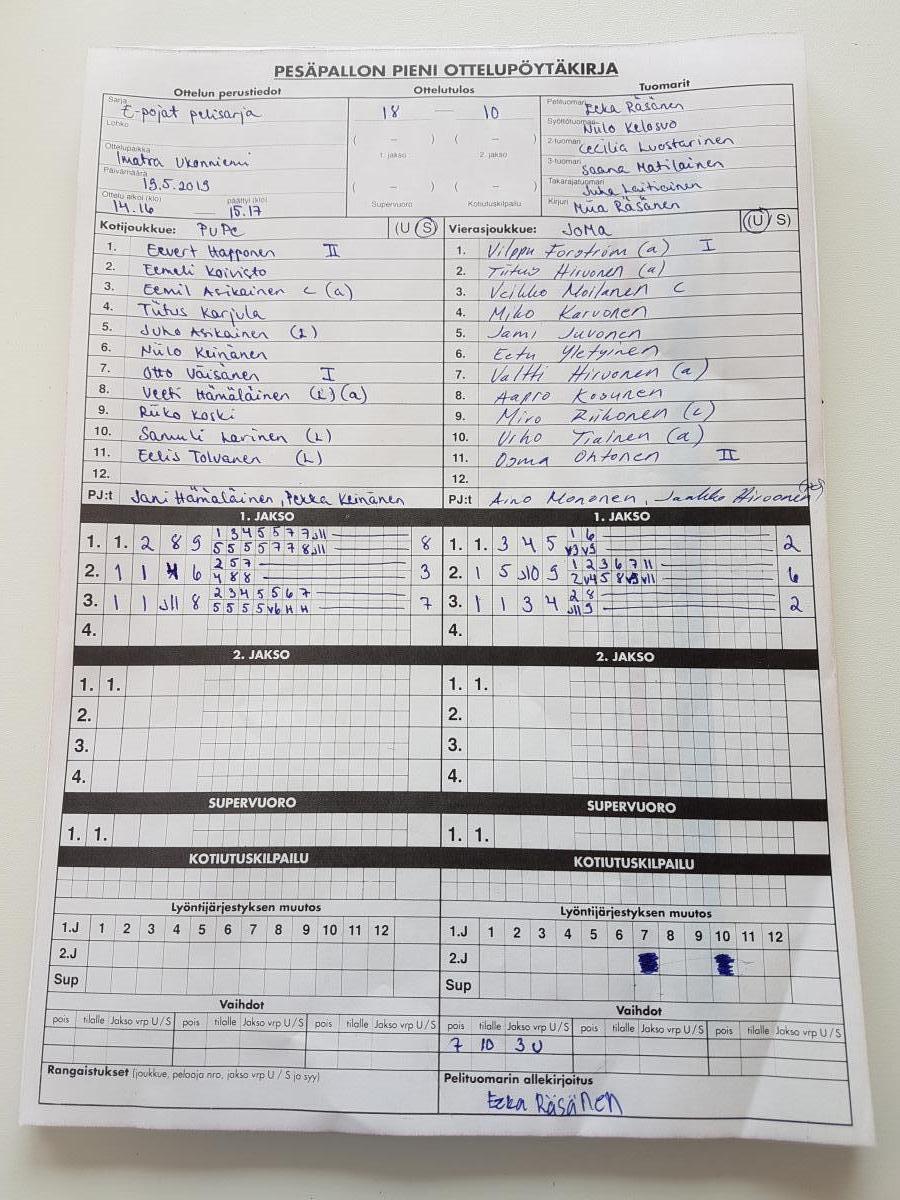 PESÄPALLON PIENI OTTELUPÖYTÄKIRJA
Ottelun perustiedot Ottelutulos Tuomarit
Sarja E-pojat pelisarja
Lohko
Ottelupaikka Imatra Ukonniemi
Päivämäärä 19.5.2019
Ottelu alkoi (klo) 14.16 päättyi (klo) 15.17
18 — 10
( – ) ( – )
1. jakso 2. jakso
( – ) ( – )
Supervuoro Kotiutuskilpailu
Pelituomari Eeka Räsänen
Syöttötuomari Niilo Kelosuo
2-tuomari Cecilia Luostarinen
3-tuomari Saana Matilainen
Takarajatuomari Juha Laitiainen
Kirjuri Miia Räsänen
Kotijoukkue: PuPe (U S)
1. Eevert Happonen II
2. Eemeli Koivisto
3. Eemil Asikainen c (a)
4. Tiitus Karjula
5. Juho Asikainen (L)
6. Niilo Keinänen
7. Otto Väisänen I
8. Veeti Hämäläinen (L) (a)
9. Riiko Koski
10. Samuli Larinen (L)
11. Eelis Tolvanen (L)
12.
PJ:t Jani Hämäläinen, Pekka Keinänen
Vierasjoukkue: JoMa (U / S)
1. Vilppu Forström (a) I
2. Tiitus Hirvonen (a)
3. Veikko Moilanen c
4. Miko Karvonen
5. Jami Juvonen
6. Eetu Yletyinen
7. Valtti Hirvonen (a)
8. Aapro Kosunen
9. Miro Riikonen (L)
10. Urho Tiainen (a)
11. Osma Ohtonen II
12.
PJ:t Aino Mononen, Jaakko Hirvonen
1. JAKSO
1. 1. 2 8 9 1 3 4 5 5 7 7 J11 8
5 5 5 5 7 7 8 J11
2. 1 1 4 6 2 5 7 3
4 8 8
3. 1 1 J11 8 2 3 4 5 5 6 7 7
5 5 5 5 V6 H H
4.
1. JAKSO
1. 1. 3 4 5 1 6 2
V3 V5
2. 1 5 J10 9 1 2 3 6 7 11 6
2 V4 5 8 V5 V11
3. 1 1 3 4 2 8 2
J11 9
4.
2. JAKSO
1. 1.
2.
3.
4.
2. JAKSO
1. 1.
2.
3.
4.
SUPERVUORO
1. 1.
SUPERVUORO
1. 1.
KOTIUTUSKILPAILU
KOTIUTUSKILPAILU
Lyöntijärjestyksen muutos
1.J 1 2 3 4 5 6 7 8 9 10 11 12
2.J
Sup
Lyöntijärjestyksen muutos
1.J 1 2 3 4 5 6 7 8 9 10 11 12
2.J
Sup
Vaihdot
pois tilalle Jakso vrp U / S pois tilalle Jakso vrp U / S pois tilalle Jakso vrp U / S
Vaihdot
pois tilalle Jakso vrp U / S pois tilalle Jakso vrp U / S pois tilalle Jakso vrp U / S
7 10 3 U
Rangaistukset (joukkue, pelaaja nro, jakso vrp U / S ja syy)
Pelituomarin allekirjoitus
Eeka Räsänen